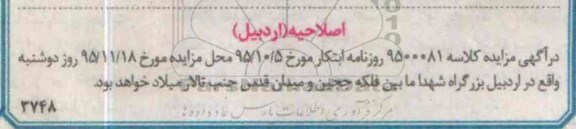 اصلاحیه(اردبیل)
درآگهی مزایده کلاسه ۹۵۰۰۰۸۱ روزنامه ابتکار مورخ ۹۵/۱۰/۵ محل مزایده مورخ ۹۵/۱۱/۱۸ روز دوشنبه
واقع در اردبیل بزرگراه شهدا ما بین فلکه ججین و میدان قدس جنب تالار میلاد خواهد بود.
۳۷۴۸
مرکز فرآوری اطلاعات پارس نماد داده ها